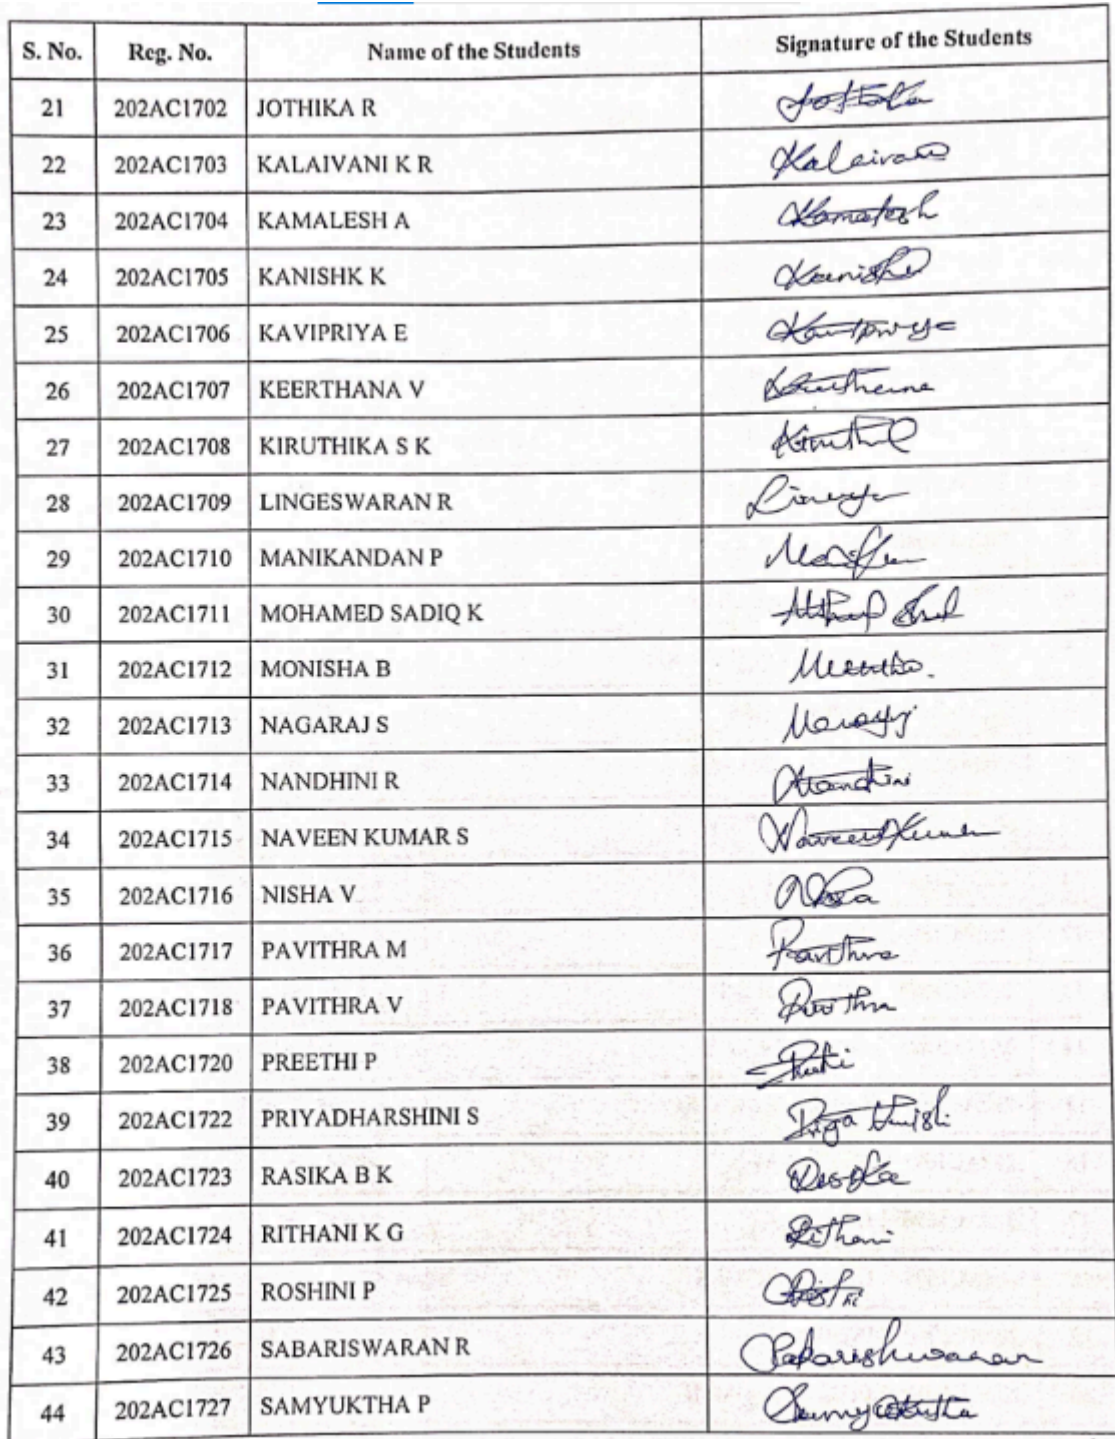 S. No. Reg. No. Name of the Students Signature of the Students
21 202AC1702 JOTHIKA R Jothika
22 202AC1703 KALAIVANI K R Kalaivani
23 202AC1704 KAMALESH A Kamalesh
24 202AC1705 KANISHK K Kanishk
25 202AC1706 KAVIPRIYA E Kavipriya
26 202AC1707 KEERTHANA V
27 202AC1708 KIRUTHIKA S K
28 202AC1709 LINGESWARAN R
29 202AC1710 MANIKANDAN P
30 202AC1711 MOHAMED SADIQ K
31 202AC1712 MONISHA B
32 202AC1713 NAGARAJ S
33 202AC1714 NANDHINI R Nandhini
34 202AC1715 NAVEEN KUMAR S Naveen Kumar
35 202AC1716 NISHA V Nisha
36 202AC1717 PAVITHRA M Pavithra
37 202AC1718 PAVITHRA V
38 202AC1720 PREETHI P
39 202AC1722 PRIYADHARSHINI S
40 202AC1723 RASIKA B K Rasika
41 202AC1724 RITHANI K G Rithani
42 202AC1725 ROSHINI P
43 202AC1726 SABARISWARAN R Sabarishwaran
44 202AC1727 SAMYUKTHA P Samyuktha